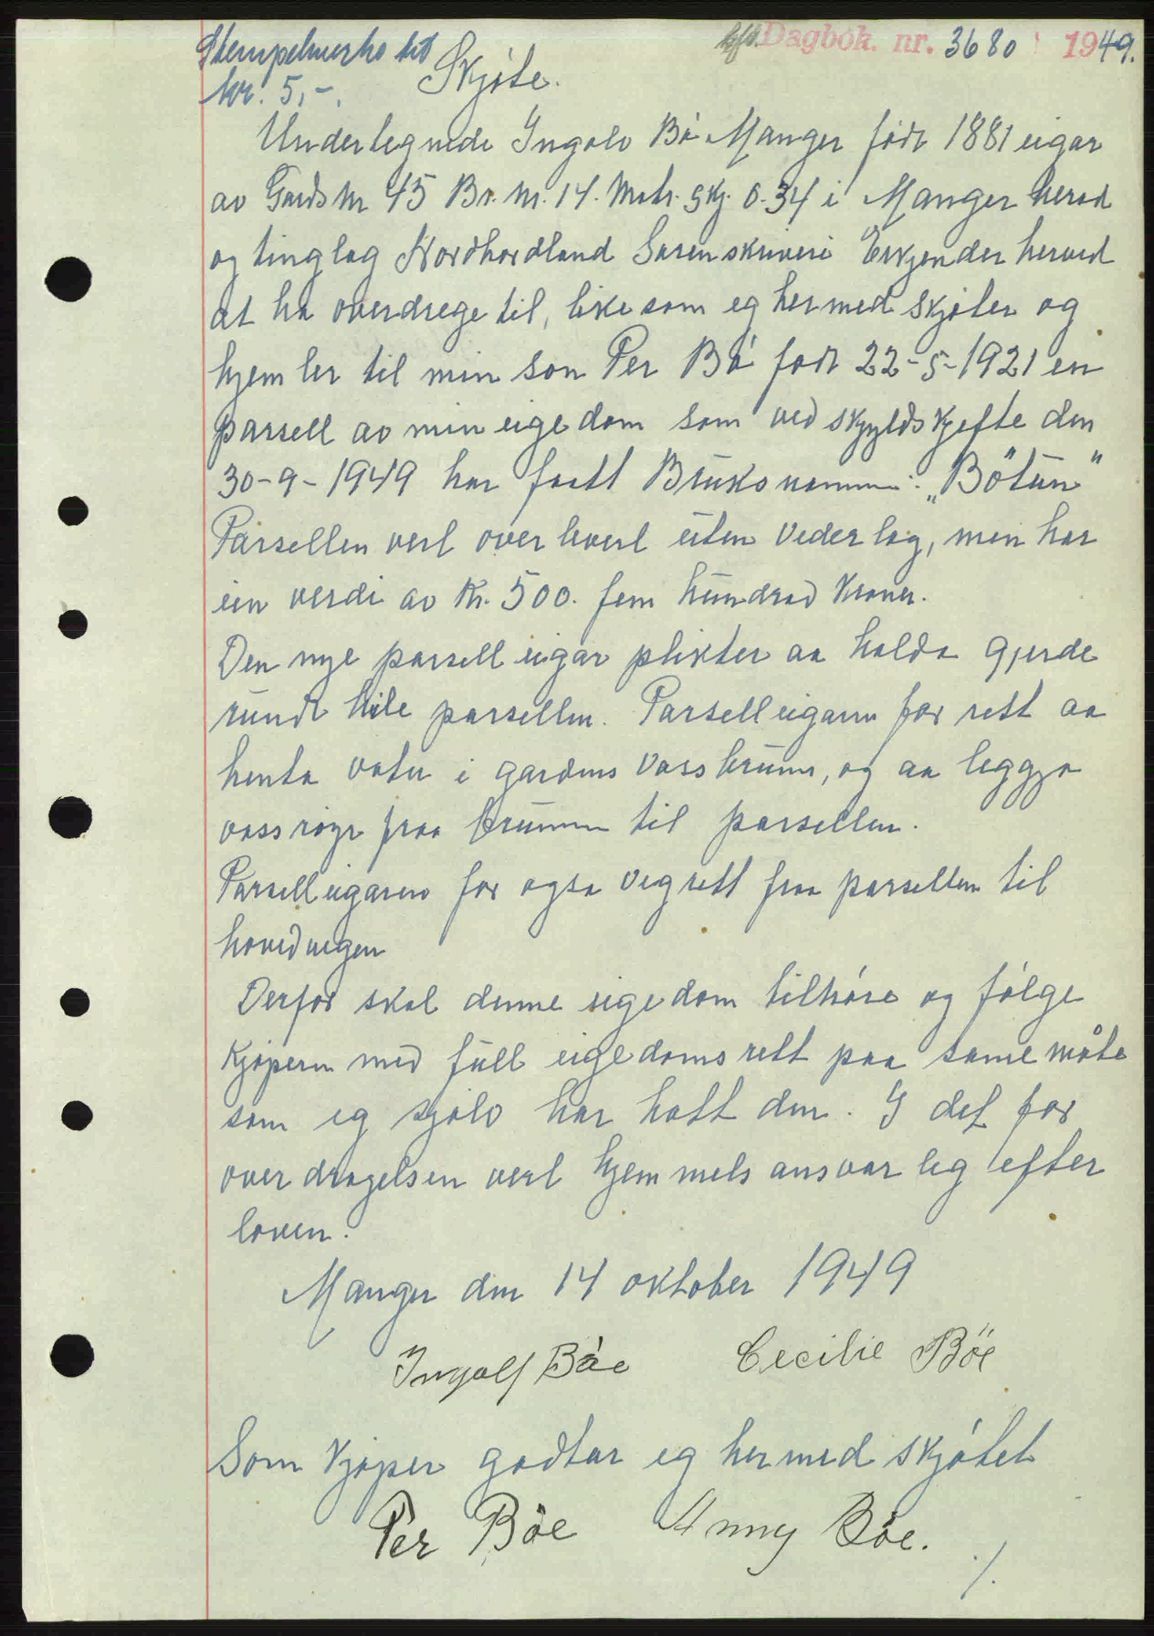 Stempelmerke till
kr. 5,-.
Skjöte.
Dagbok. nr. 3680 1949.
Undertegnede Ingolv Bö Manger född 1881 eigar
av Gards Nr 45 Br. Nr. 14. Matr. Skj. 0.34 i Manger herad
og tinglag Nordhordland Sorenskriveri Erkjender herved
at ha overdrege til, like som eg hermed skjöter og
hjemler til min son Per Bö födt 22-5-1921 en
parsell av min eigedom som ved skyldskjefte den
30-9-1949 har faatt Bruksnamn: "Bötun"
Parsellen vert overlevert uten vederlag, men har
ein verdi av Kr. 500. fem hundrad Kroner.
Den nye parsell eigar plikter aa halda gjerde
rundt heile parsellen. Parselleigaren far rett aa
henta vatn i gardens vassbrunn, og aa leggja
vassröyr fraa brunnen til parsellen.
Parselleigaren far ogsa vegrett fraa parsellen til
hovedvegen
Derfor skal denne eigedom tilhöre og fölge
kjöperen med full eigedomsrett paa same måte
som eg sjölv har hatt den. I det for
overdragelsen vert hjemmels ansvarleg efter
loven.
Manger den 14 oktober 1949
Ingolf Böe Cecilie Böe
Som kjöper godtar eg hermed skjötet
Per Böe Anny Böe.
./.